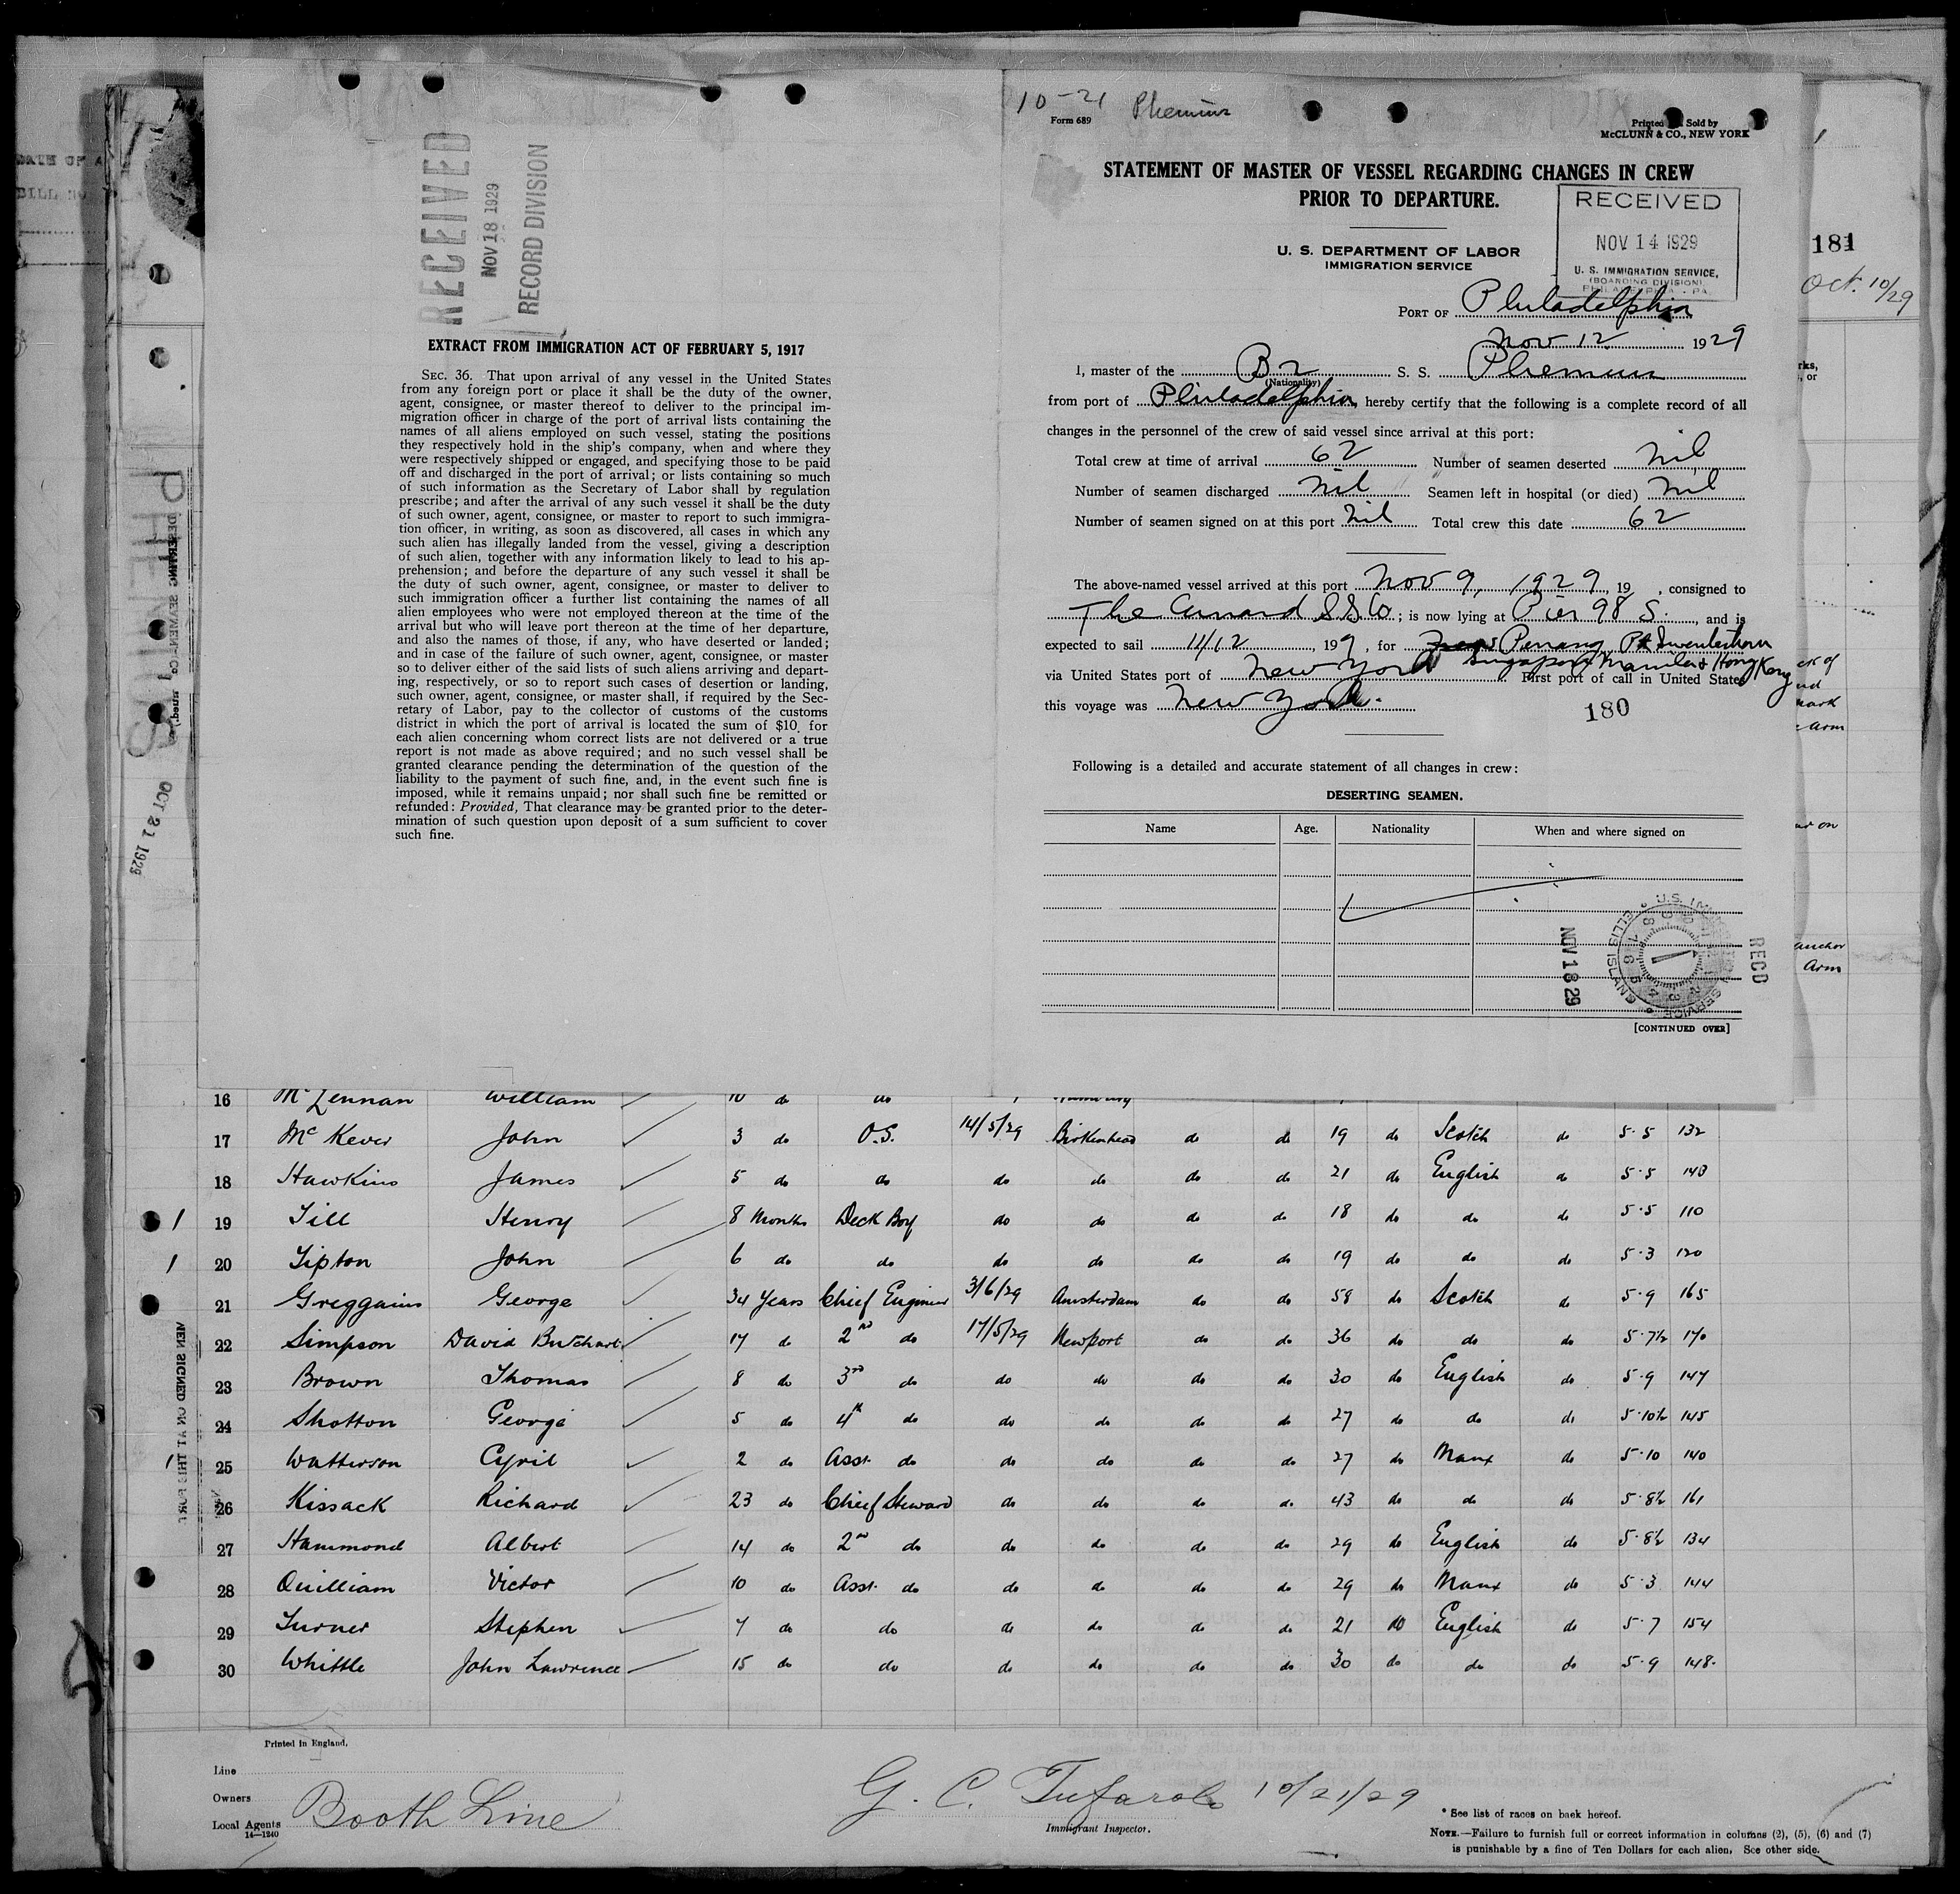 RECEIVED
NOV 18 1929
RECORD DIVISION
EXTRACT FROM IMMIGRATION ACT OF FEBRUARY 5, 1917
SEC. 36. That upon arrival of any vessel in the United States
from any foreign port or place it shall be the duty of the owner,
agent, consignee, or master thereof to deliver to the principal im-
migration officer in charge of the port of arrival lists containing the
names of all aliens employed on such vessel, stating the positions
they respectively hold in the ship's company, when and where they
were respectively shipped or engaged, and specifying those to be paid
off and discharged in the port of arrival; or lists containing so much
of such information as the Secretary of Labor shall by regulation
prescribe; and after the arrival of any such vessel it shall be the duty
of such owner, agent, consignee, or master to report to such immigra-
tion officer, in writing, as soon as discovered, all cases in which any
such alien has illegally landed from the vessel, giving a description
of such alien, together with any information likely to lead to his ap-
prehension; and before the departure of any such vessel it shall be
the duty of such owner, agent, consignee, or master to deliver to
such immigration officer a further list containing the names of all
alien employees who were not employed thereon at the time of the
arrival but who will leave port thereon at the time of her departure,
and also the names of those, if any, who have deserted or landed;
and in case of the failure of such owner, agent, consignee, or master
so to deliver either of the said lists of such aliens arriving and depart-
ing, respectively, or so to report such cases of desertion or landing,
such owner, agent, consignee, or master shall, if required by the Sec-
retary of Labor, pay to the collector of customs of the customs
district in which the port of arrival is located the sum of $10 for
each alien concerning whom correct lists are not delivered or a true
report is not made as above required; and no such vessel shall be
granted clearance pending the determination of the question of the
liability to the payment of such fine, and, in the event such fine is
imposed, while it remains unpaid; nor shall such fine be remitted or
refunded: Provided, That clearance may be granted prior to the deter-
mination of such question upon deposit of a sum sufficient to cover
such fine.
10-21 Phemius
Form 689
Printed Sold by
McCLUNN & CO., NEW YORK
STATEMENT OF MASTER OF VESSEL REGARDING CHANGES IN CREW
PRIOR TO DEPARTURE.
RECEIVED
NOV 14 1929
U. S. IMMIGRATION SERVICE,
(BOARDING DIVISION),
PHILADELPHIA - PA.
U. S. DEPARTMENT OF LABOR
IMMIGRATION SERVICE
PORT OF Philadelphia
Nov 12 1929
I, master of the Br S. S. Phemius
(Nationality)
from port of Philadelphia, hereby certify that the following is a complete record of all
changes in the personnel of the crew of said vessel since arrival at this port:
Total crew at time of arrival 62 Number of seamen deserted nil
Number of seamen discharged nil Seamen left in hospital (or died) nil
Number of seamen signed on at this port nil Total crew this date 62
The above-named vessel arrived at this port Nov 9, 1929, 19 , consigned to
The Cunard S.S. Co; is now lying at Pier 98 S., and is
expected to sail 11/12, 199, for Penang, Pt Swettenham
Singapore, Manila & Hong Kong
via United States port of New York First port of call in United States
this voyage was New York.
180
Following is a detailed and accurate statement of all changes in crew:
DESERTING SEAMEN.
Name Age. Nationality When and where signed on
NOV 18 29
RECD
U.S. IMMIGRATION SERVICE
ELLIS ISLAND
[CONTINUED OVER]
181
Oct. 10/29
PHEMIUS
OCT 21 1929
16 McLennan William 10 do do
17 McKever John 3 do O.S. 14/5/29 Birkenhead do do 19 do Scotch do 5·5 132
18 Hawkins James 5 do do do do do do 21 do English do 5·5 143
1 19 Till Henry 8 Months Deck Boy do do do do 18 do do do 5·5 110
1 20 Tipton John 6 do do do do do do 19 do do do 5·3 120
21 Greggains George 34 Years Chief Engineer 3/6/29 Amsterdam do do 58 do Scotch do 5·9 165
22 Simpson David Butchart 17 do 2nd do 17/5/29 Newport do do 36 do do do 5·7½ 170
23 Brown Thomas 8 do 3rd do do do do do 30 do English do 5·9 147
24 Shotton George 5 do 4th do do do do do 27 do do do 5·10½ 145
1 25 Watterson Cyril 2 do Asst. do do do do do 27 do Manx do 5·10 140
26 Kissack Richard 23 do Chief Steward do do do do 43 do do do 5·8½ 161
27 Hammond Albert 14 do 2nd do do do do do 29 do English do 5·8½ 134
28 Quilliam Victor 10 do Asst. do do do do do 29 do Manx do 5·3 144
29 Turner Stephen 7 do do do do do do 21 do English do 5·7 154
30 Whittle John Lawrence 15 do do do do do do 30 do do do 5·9 148.
Printed in England.
Line
Owners
Local Agents Booth Line
14—1240
G. C. Tufarolo 10/21/29
Immigrant Inspector.
* See list of races on back hereof.
NOTE.—Failure to furnish full or correct information in columns (2), (5), (6) and (7)
is punishable by a fine of Ten Dollars for each alien. See other side.